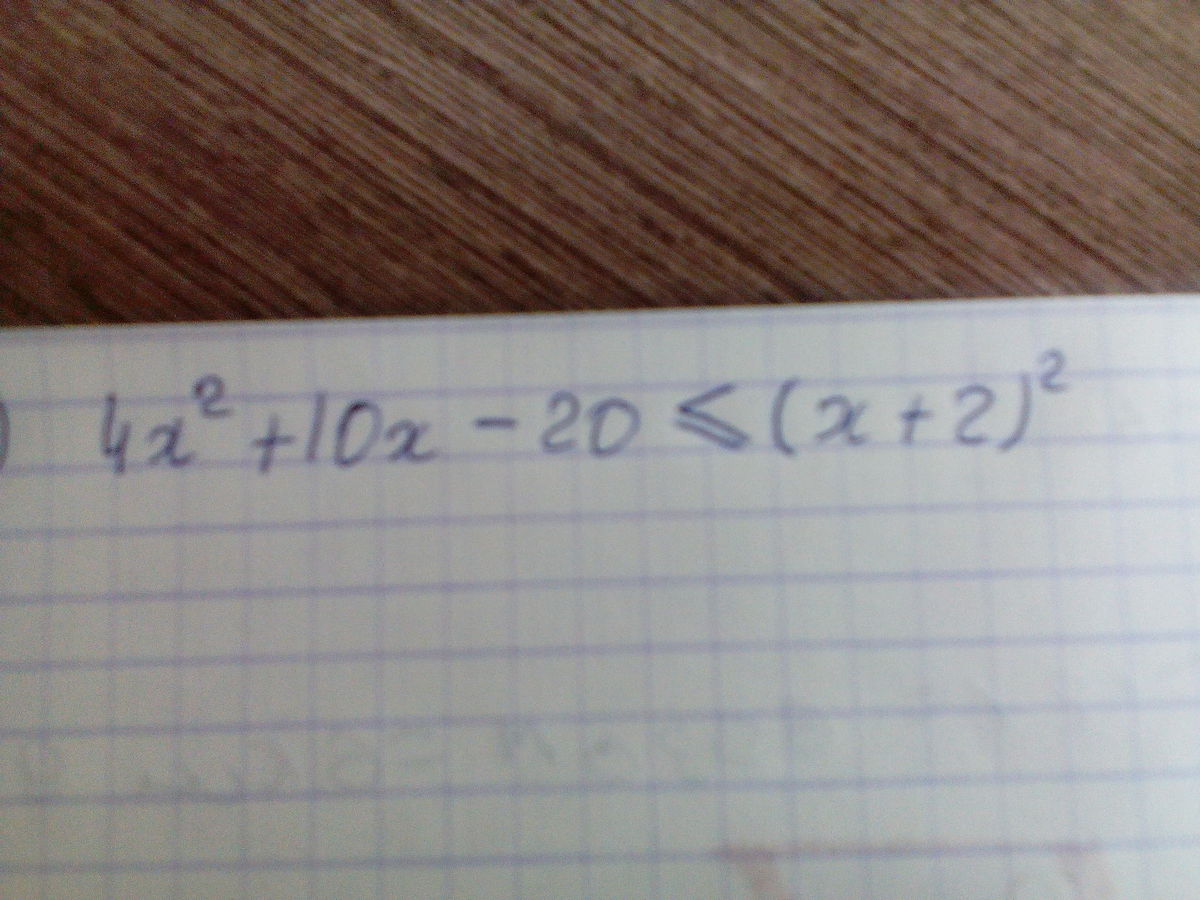 ) 4x² + 10x - 20 ⩽ (x + 2)²